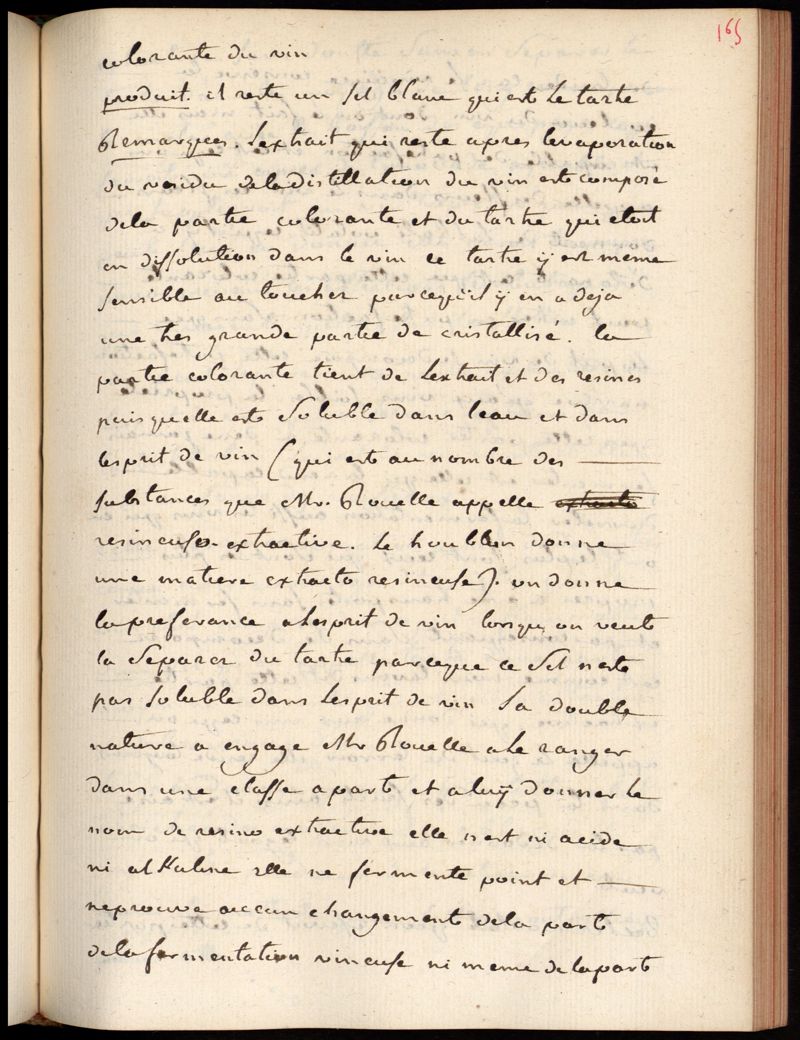 165
colorante du vin
produit. il reste un sel blanc qui est le tartre
Remarques. Lextrait qui reste apres levaporation
du residu de la distillation du vin est composé
dela partie colorante et du tartre qui etoit
en dissolution dans le vin ce tartre ÿ est meme
sensible au toucher parcequ'il ÿ en a deja
une tres grande partie de cristallisé. la
partie colorante tient de Lextrait et des resines
puis quelle est soluble dans leau et dans
lesprit de vin (qui est au nombre des
substances que Mr. Rouelle appelle extracto
resineuse-extractive. Le houblon donne
une matiere extracto resineuse). on donne
la preferance a Lesprit de vin lorsqu on veut
la separer du tartre parceque ce sel nest
pas soluble dans Lesprit de vin sa double
nature a engage Mr Rouelle a Le ranger
dans une classe a part et a luÿ donner le
nom de resino extractive elle nest ni acide
ni alkaline elle ne fermente point et
neprouve aucun changement dela part
dela fermentation vineuse ni meme de la part